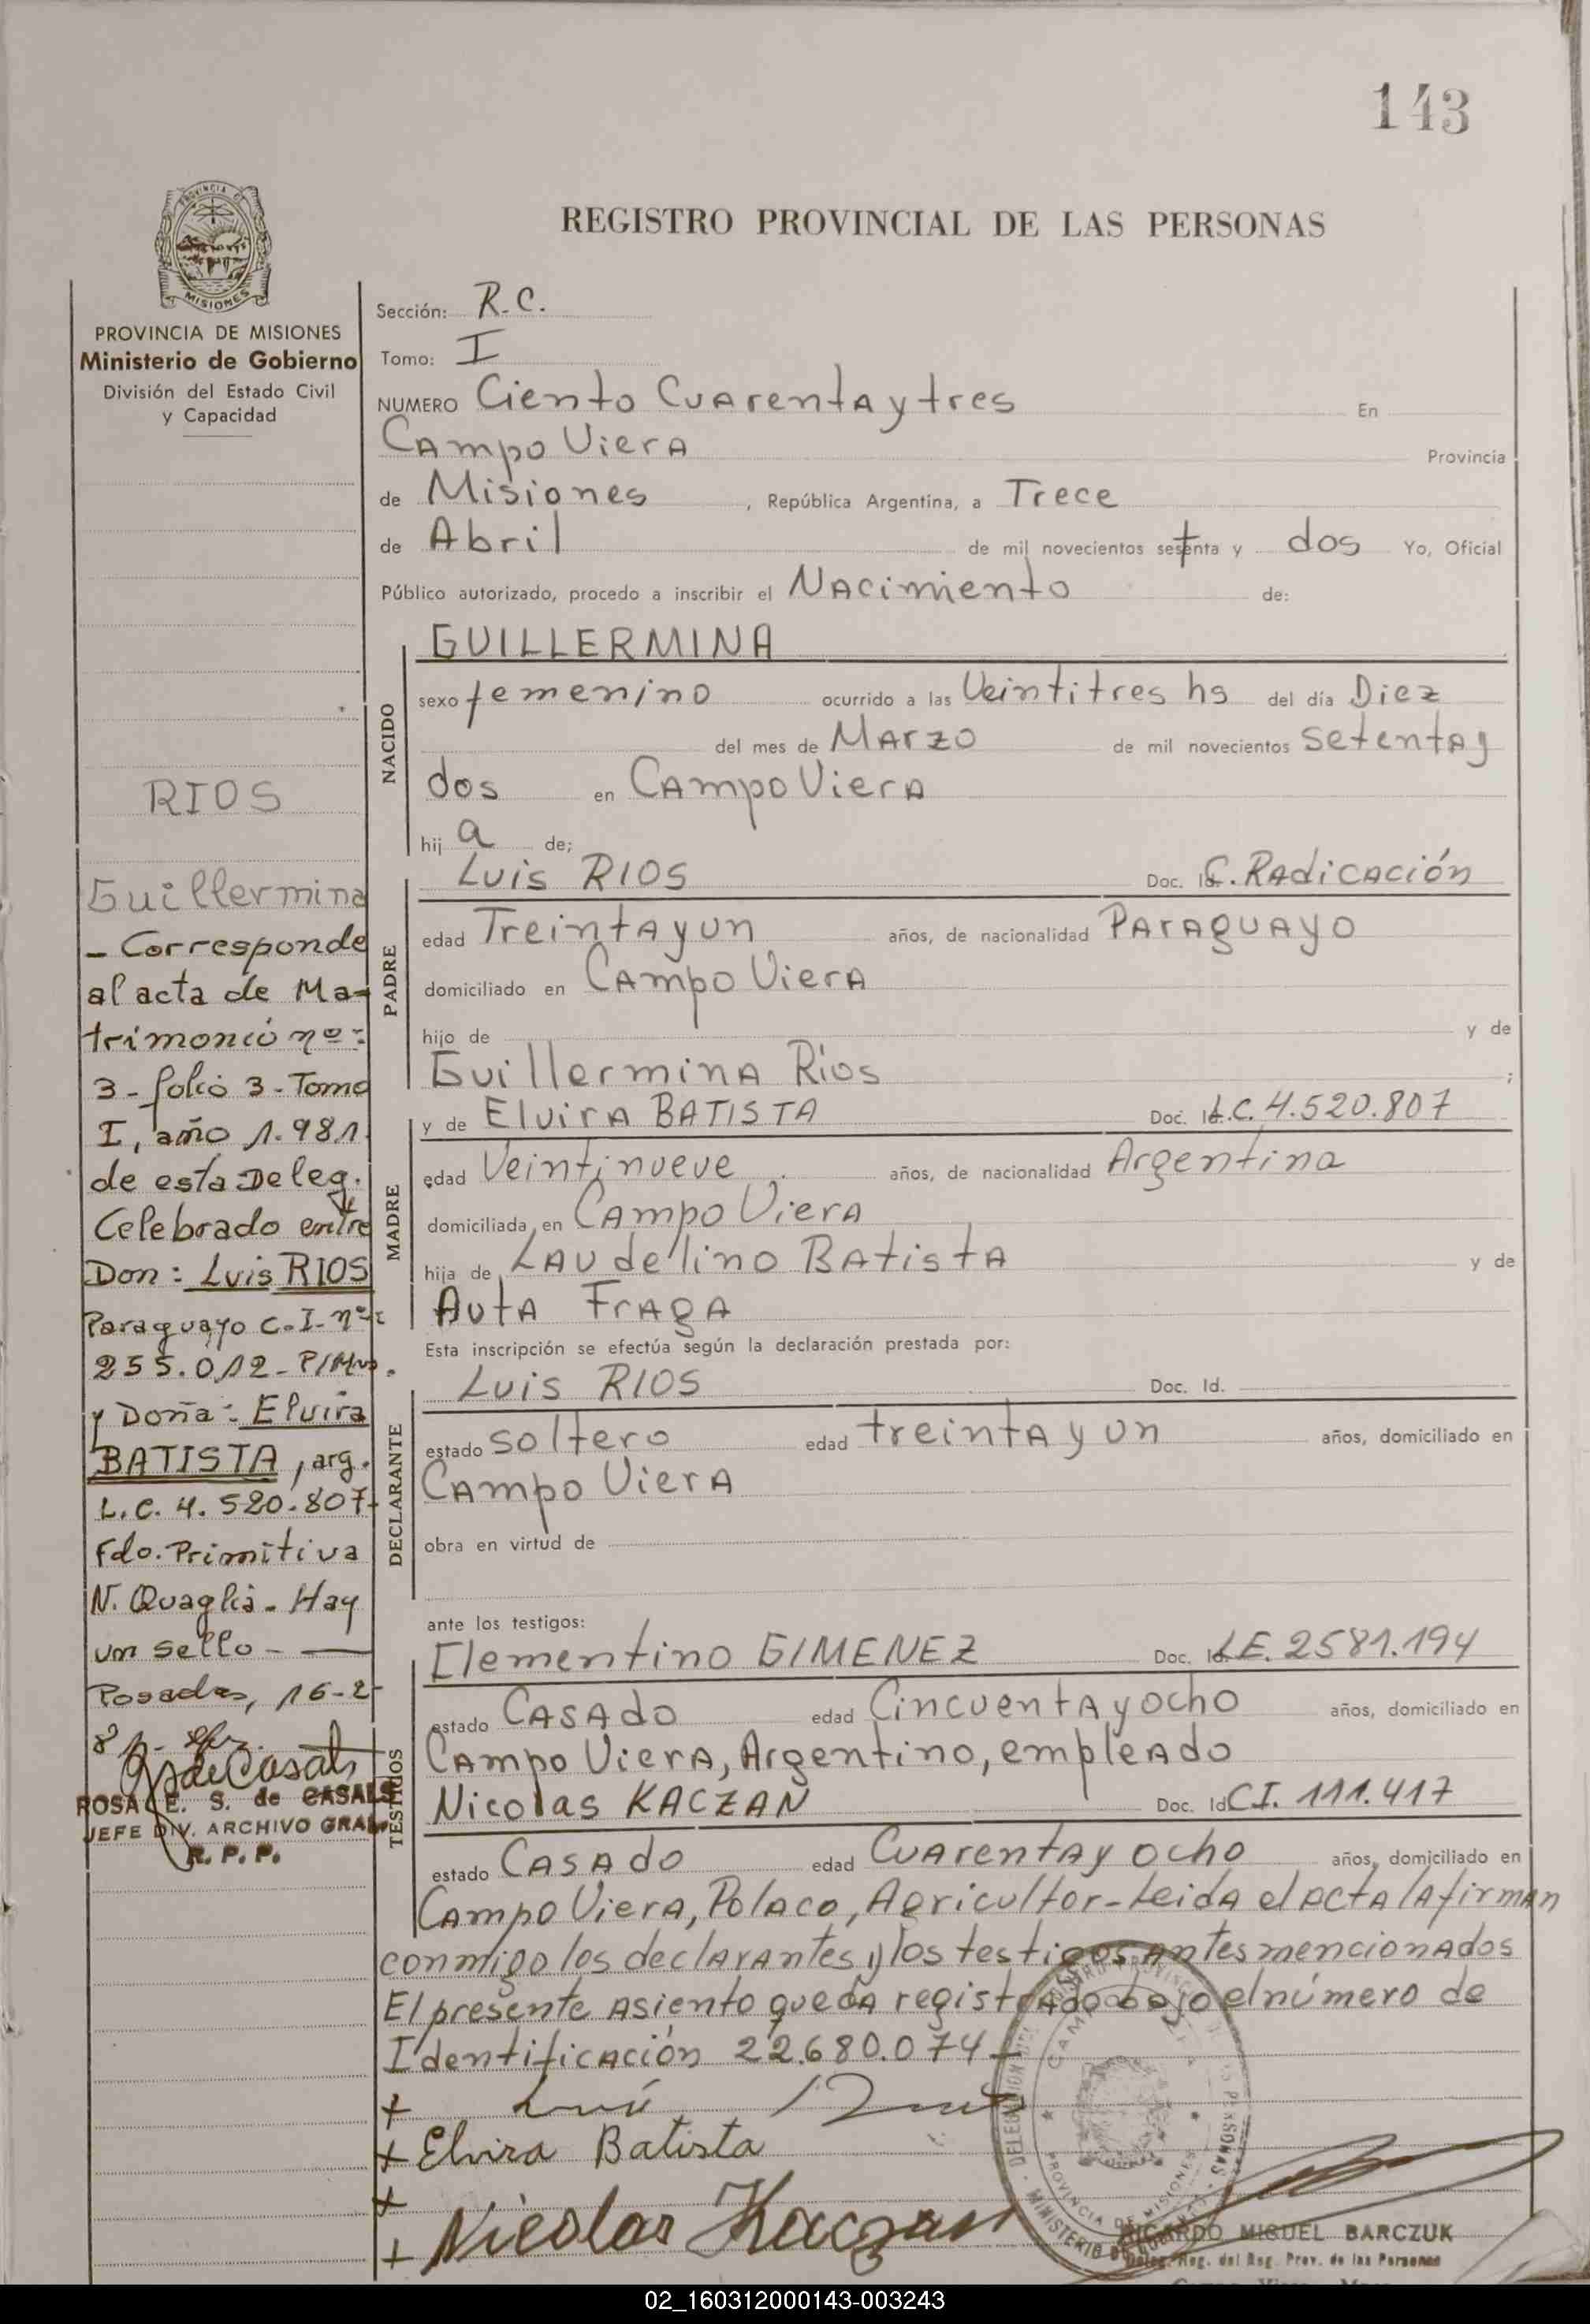 143
REGISTRO PROVINCIAL DE LAS PERSONAS
PROVINCIA DE
MISIONES
PROVINCIA DE MISIONES
Ministerio de Gobierno
División del Estado Civil
y Capacidad
RIOS
Guillermina
- Corresponde
al acta de Ma-
trimonio nº:
3 - folio 3 - Tomo
I, año 1.981
de esta Deleg.
Celebrado entre
Don: Luis RIOS
Paraguayo C.I. nº:
255.012 - P/Mns.
y Doña: Elvira
BATISTA, arg.
L.C. 4.520.807-
Fdo. Primitiva
N. Quaglia - Hay
un sello -
Posadas, 16-2-
ROSA E. S. de CASALS
JEFE DIV. ARCHIVO GRAL.
R. P. P.
Sección: R.C.
Tomo: I
NUMERO Ciento Cuarenta y tres En
Campo Viera Provincia
de Misiones , República Argentina, a Trece
de Abril de mil novecientos setenta y dos Yo, Oficial
Público autorizado, procedo a inscribir el Nacimiento de:
NACIDO
GUILLERMINA
sexo femenino ocurrido a las Veintitres hs del día Diez
del mes de Marzo de mil novecientos setenta y
dos en Campo Viera
hij a de;
PADRE
Luis RIOS Doc. Id. C. Radicación
edad Treinta y un años, de nacionalidad Paraguayo
domiciliado en Campo Viera
hijo de y de
Guillermina Ríos ;
MADRE
y de Elvira BATISTA Doc. Id. L.C. 4.520.807
edad Veintinueve años, de nacionalidad Argentina
domiciliada en Campo Viera
hija de Laudelino Batista y de
Auta Fraga
Esta inscripción se efectúa según la declaración prestada por:
DECLARANTE
Luis RIOS Doc. Id.
estado soltero edad treinta y un años, domiciliado en
Campo Viera
obra en virtud de
ante los testigos:
TESTIGOS
Clementino GIMENEZ Doc. Id. L.E. 2581.194
estado Casado edad Cincuenta y ocho años, domiciliado en
Campo Viera, Argentino, empleado
Nicolas KACZAN Doc. Id C.I. 111.417
estado Casado edad Cuarenta y ocho años, domiciliado en
Campo Viera, Polaco, Agricultor - Leida el acta la firman
conmigo los declarantes y los testigos antes mencionados
El presente asiento queda registrado bajo el número de
Identificación 22.680.074 -
+ Luis
+ Elvira Batista
+
+ Nicolas Kaczan
MINISTERIO DE
PROVINCIA DE MISIONES
RICARDO MIGUEL BARCZUK
Deleg. Reg. del Reg. Prov. de las Personas
02_160312000143-003243